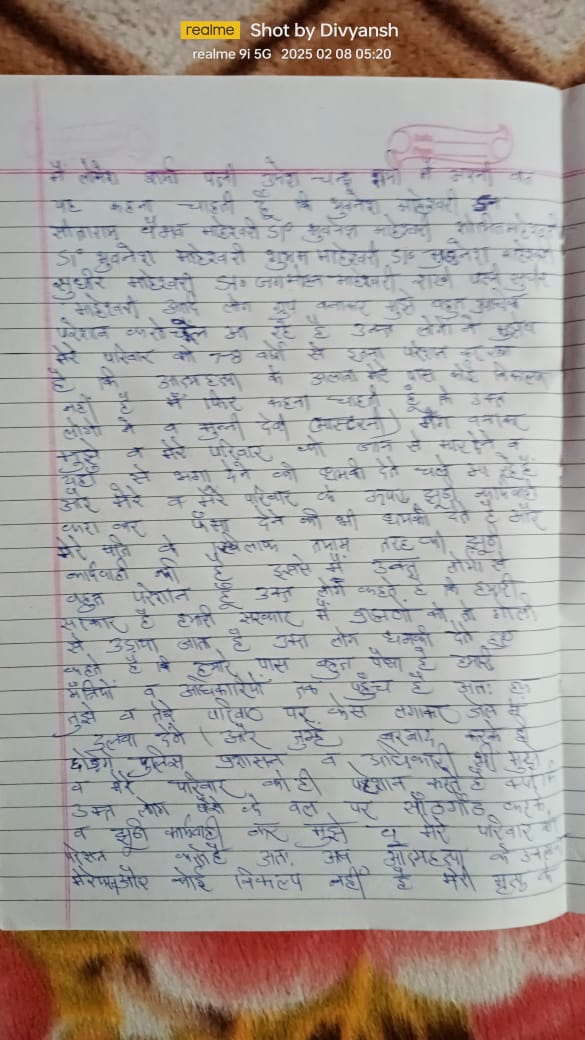 realme Shot by Divyansh
realme 9i 5G 2025 02 08 05:20
मैं शर्मा पत्नी उमेश चन्द्र शर्मा मैं अपनी
यह कहना चाहती हूँ कि भुवनेश माहेश्वरी
सीताराम वैभव माहेश्वरी S/o भुवनेश माहेश्वरी
S/o भुवनेश माहेश्वरी शुभम माहेश्वरी S/o माहेश्वरी
सुधीर माहेश्वरी S/o जगमोहन माहेश्वरी राखी पत्नी सुधीर
माहेश्वरी आदि लोग ग्रुप बनाकर मुझे बहुत
परेशान करते आ रहे है उक्त लोगों ने मुझे व
मेरे परिवार को 7-8 वर्षों से इतना परेशान कर रखा
है कि आत्महत्या के अलावा मेरे पास कोई विकल्प
नहीं है मैं फिर कहना चाहती हूँ कि उक्त
लोगों ने व मुन्नी देवी (मास्टरनी) गैंग बनाकर
मुझे व मेरे परिवार को जान से मार देने व
यहाँ से भगा देने की धमकी देते चले आ रहे हैं
और मेरे व मेरे परिवार के ऊपर झूठी कार्यवाही
करा कर फँसा देने की भी धमकी देते है और
मेरे पति के खिलाफ तमाम तरह की झूठी
कार्यवाही की है इससे मैं उक्त लोगों से
बहुत परेशान हूँ उक्त लोग कहते है कि हमारी
सरकार है हमारी सरकार में ब्राह्मणों को तो गोली
से उड़ाया जाता है उक्त लोग धमकी देते हुए
कहते है कि हमारे पास बहुत पैसा है हमारी
मंत्रियों व अधिकारियों तक पहुँच है अतः हम
तुझे व तेरे परिवार पर केस लगाकर जेल में
डलवा देंगे और तुम्हें बरबाद करके ही
छोड़ेंगे पुलिस प्रशासन व अधिकारी भी मुझे
व मेरे परिवार को ही परेशान करते है क्योंकि
उक्त लोग पैसे के बल पर साँठगाँठ करके
व झूठी कार्यवाही कर मुझे व मेरे परिवार को
परेशान करते है अतः अब आत्महत्या के अलावा
मेरे पास और कोई विकल्प नहीं है मेरी मृत्यु के